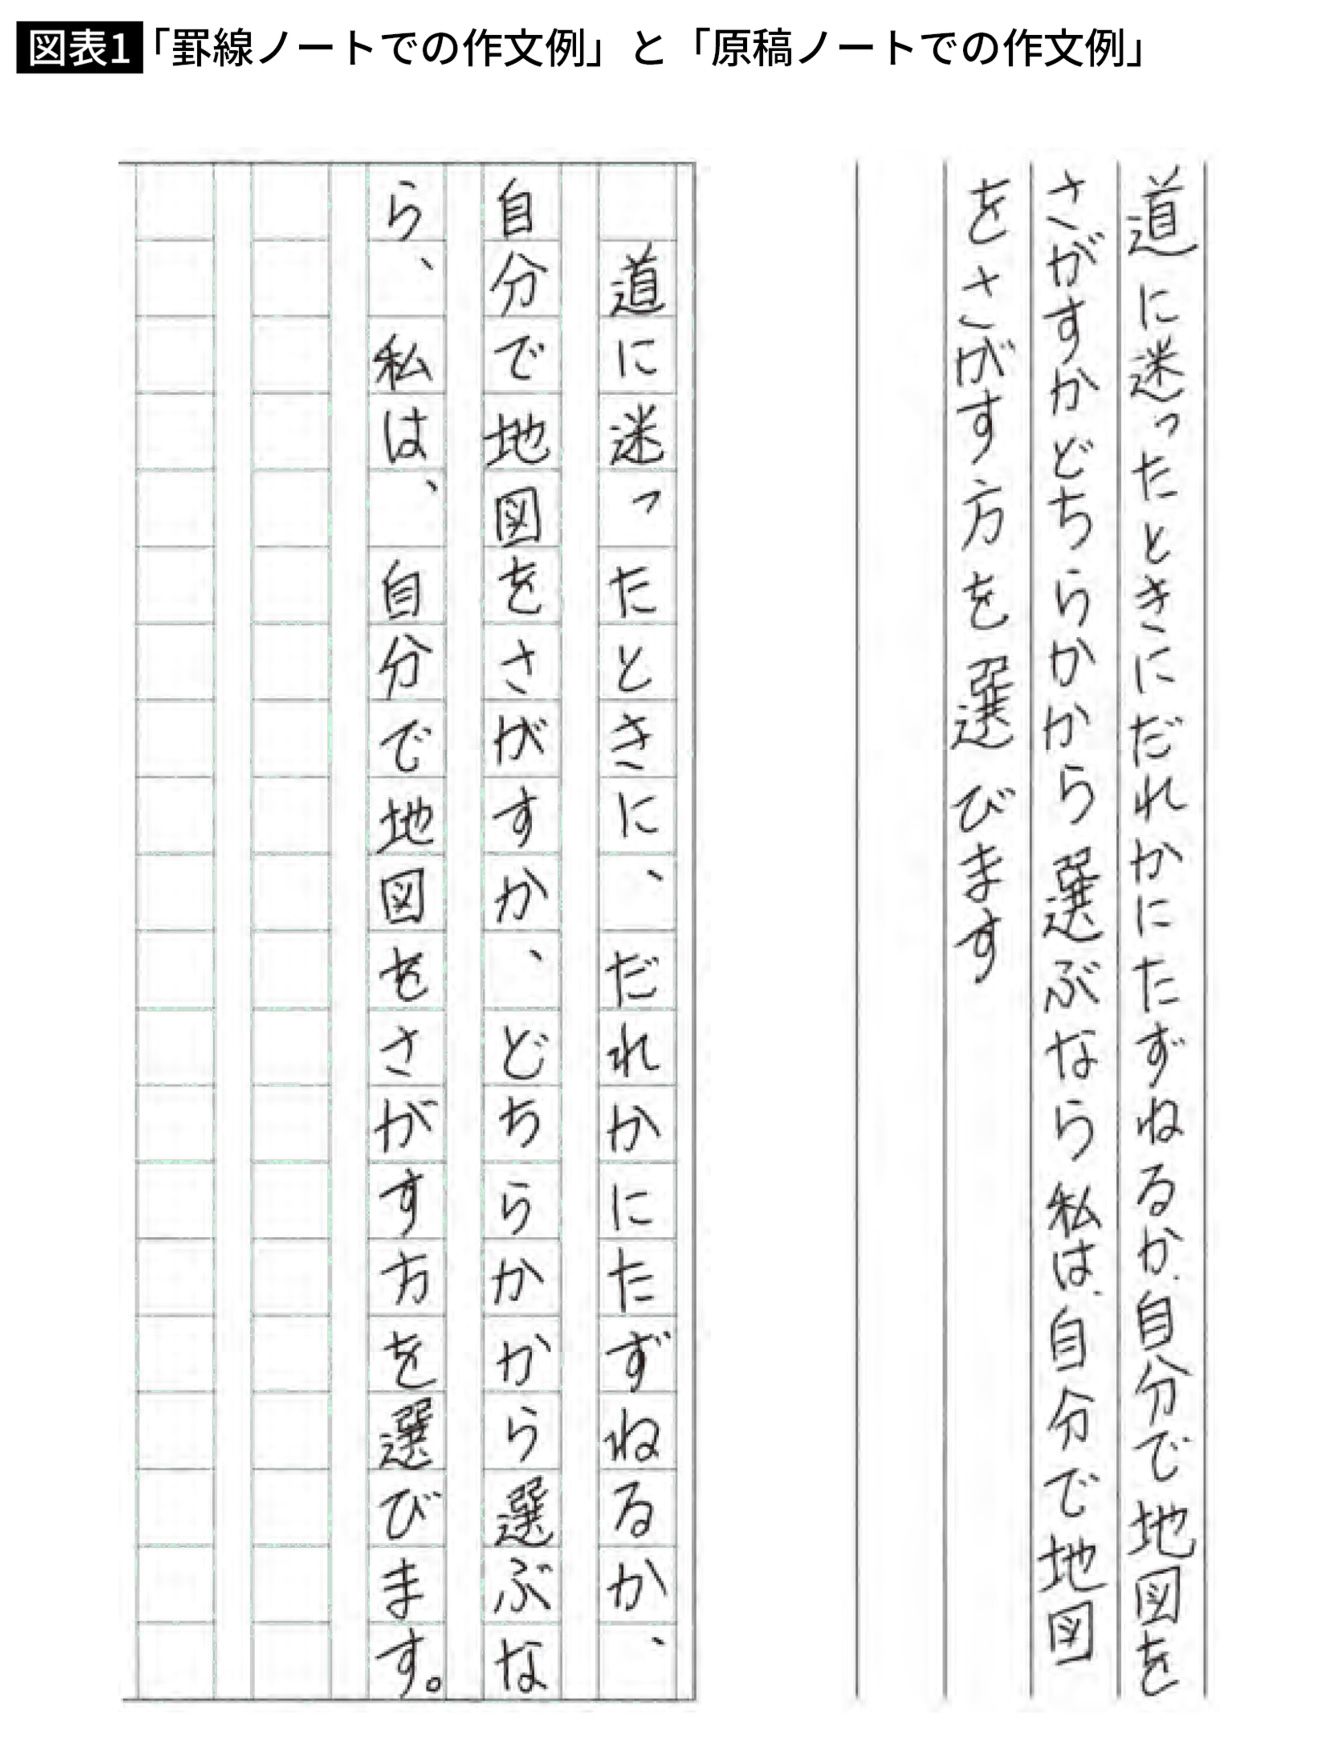 図表1「罫線ノートでの作文例」と「原稿ノートでの作文例」
道に迷ったときにだれかにたずねるか、自分で地図を
さがすかどちらかから選ぶなら私は、自分で地図
をさがす方を選びます
道に迷ったときに、だれかにたずねるか、
自分で地図をさがすか、どちらかから選ぶな
ら、私は、自分で地図をさがす方を選びます。